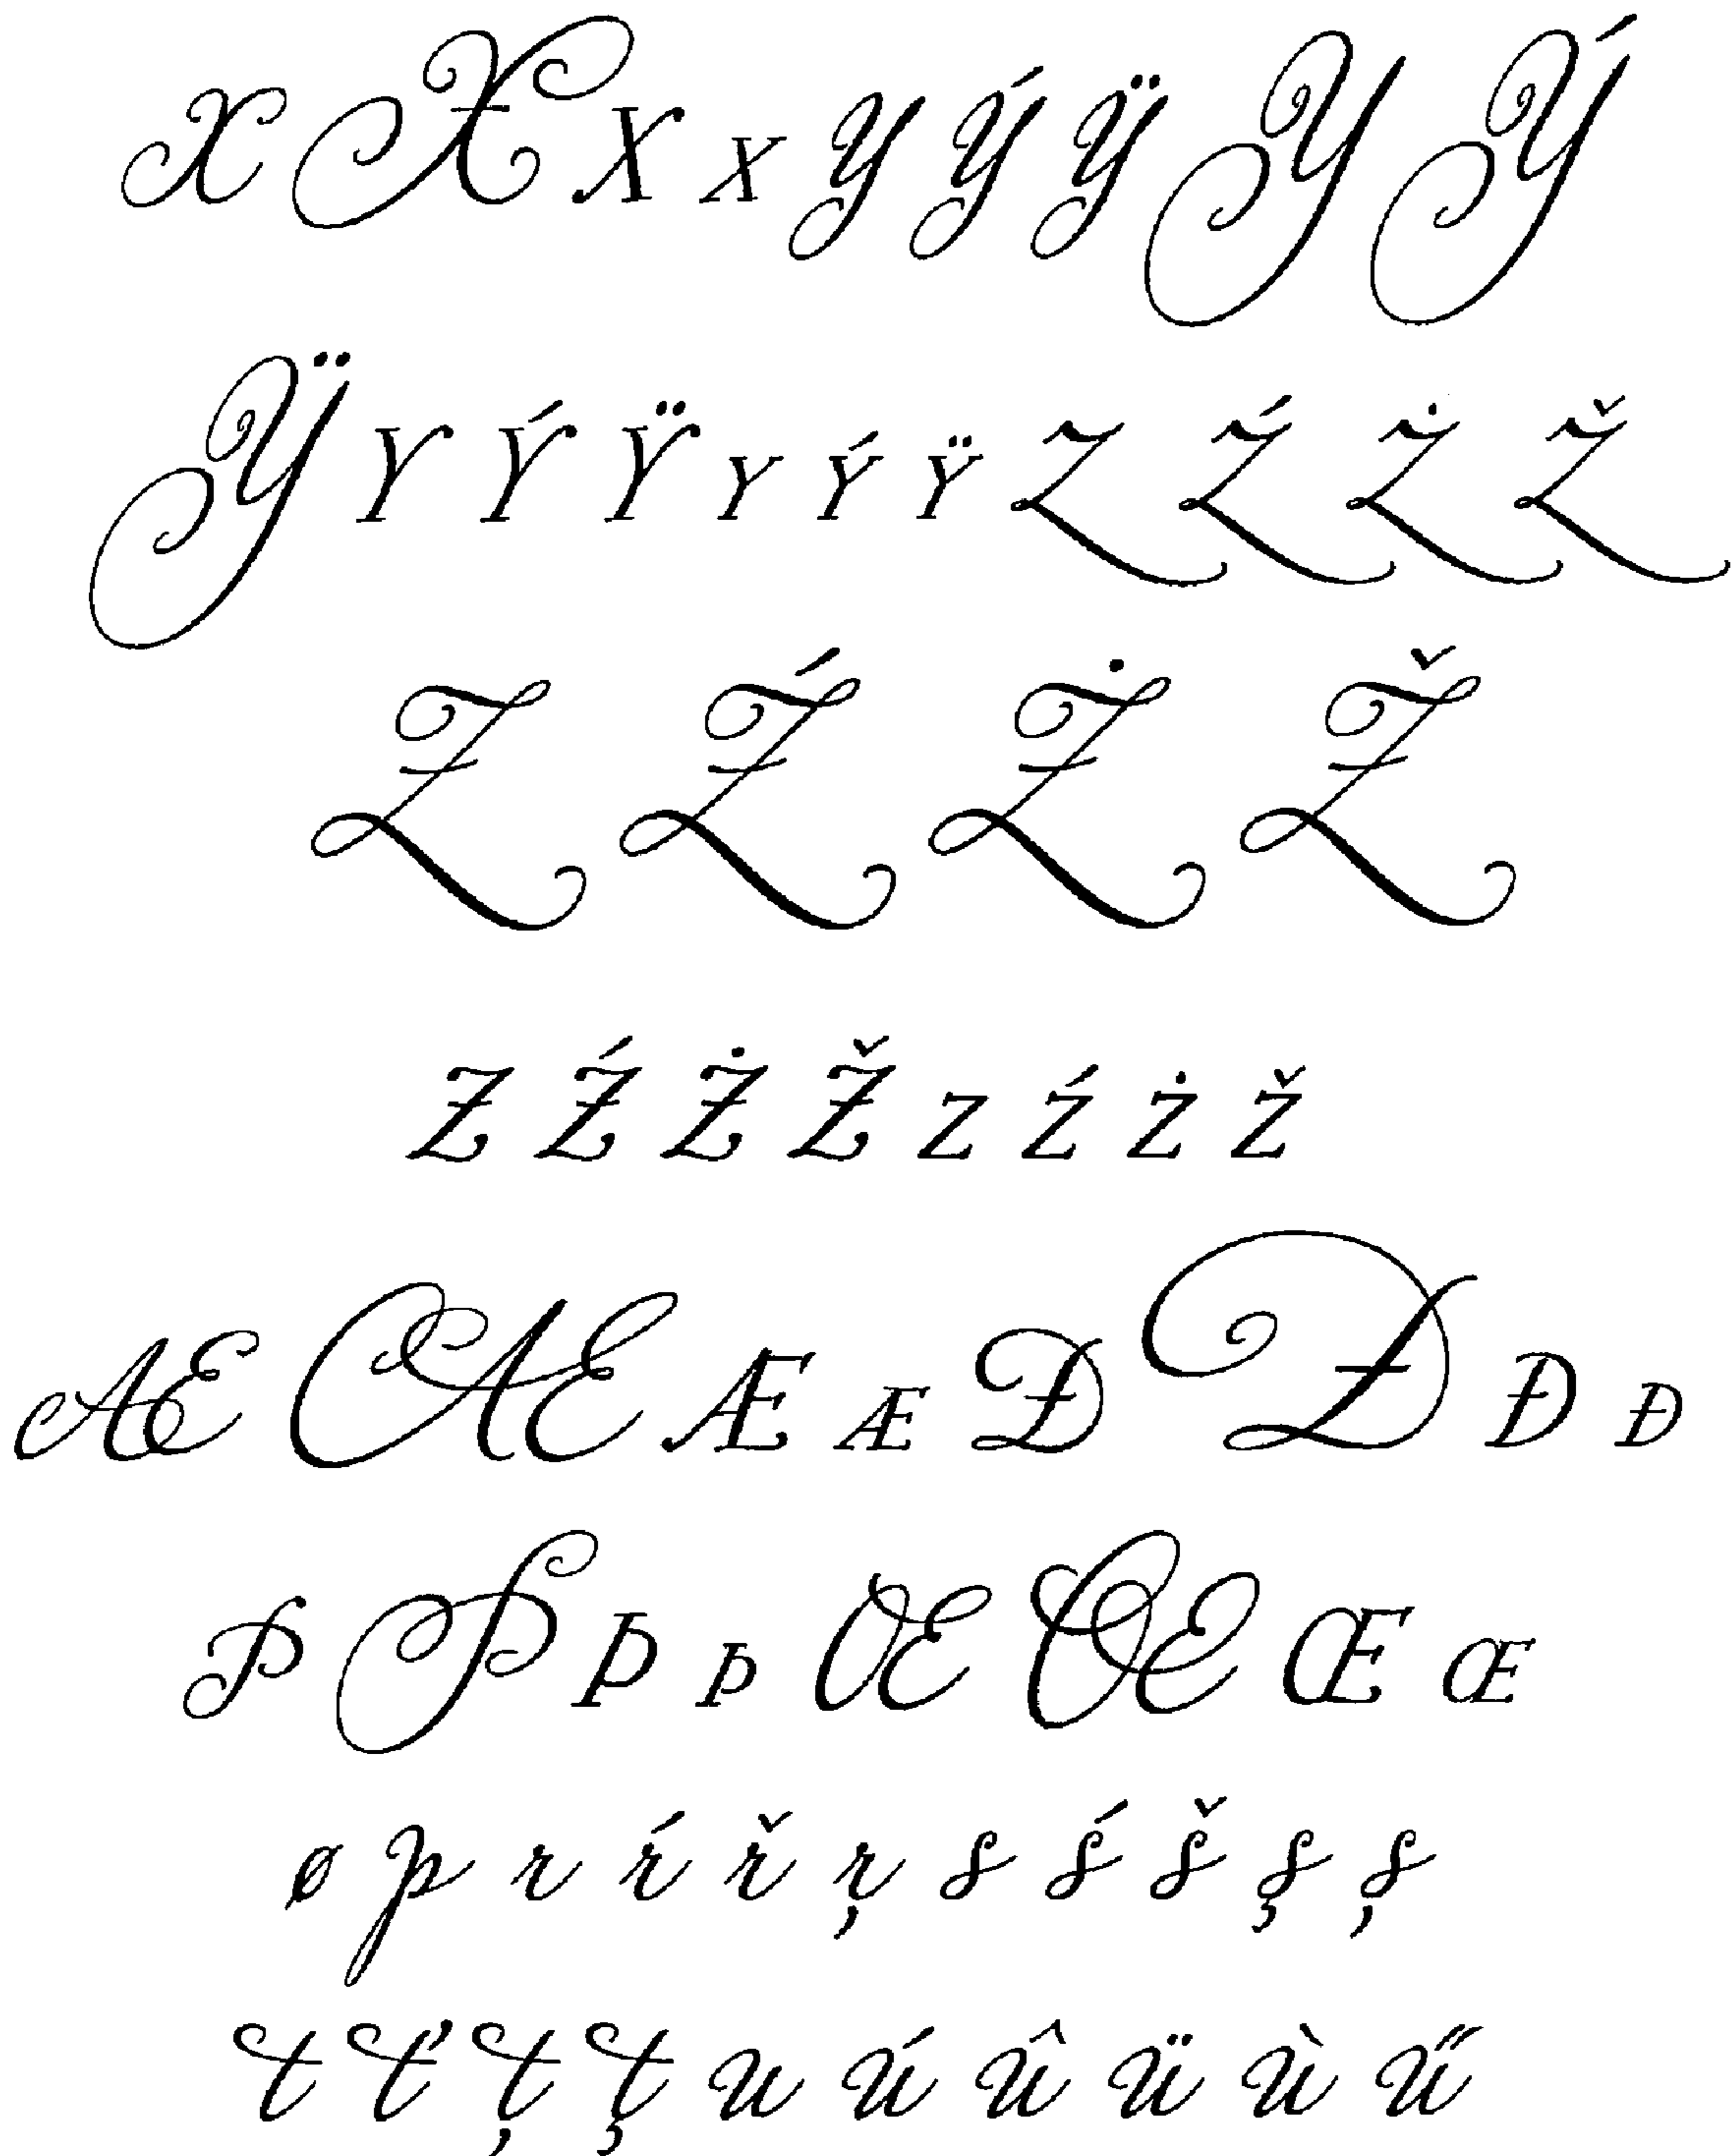 X X X X Y Ý Ÿ Y Ý
Ÿ Y Ý Ÿ Y Ý Ÿ Z Ź Ż Ž
Z Ź Ż Ž
Z Ź Ż Ž Z Ź Ż Ž
Æ Æ Æ Æ Đ Đ Đ Đ
Þ Þ Þ Þ Œ Œ Œ Œ
ø p r ŕ ř ŗ s ś š ş ș
t ť ț ţ u ú û ü ù ű